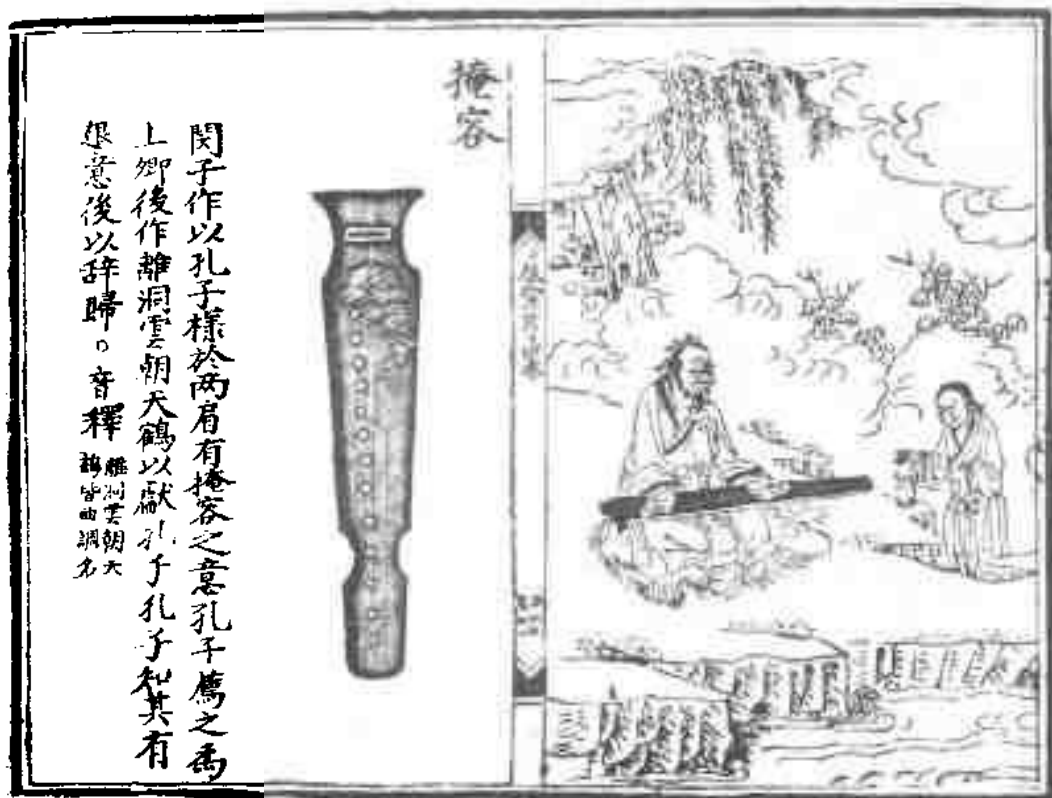 掩容
閔子作以孔子樣於两肩有掩容之意孔子薦之為
上卿後作離洞雲朝天鶴以獻孔子孔子知其有
退意後以辞歸
音釋
離洞雲朝天
鶴皆曲調名